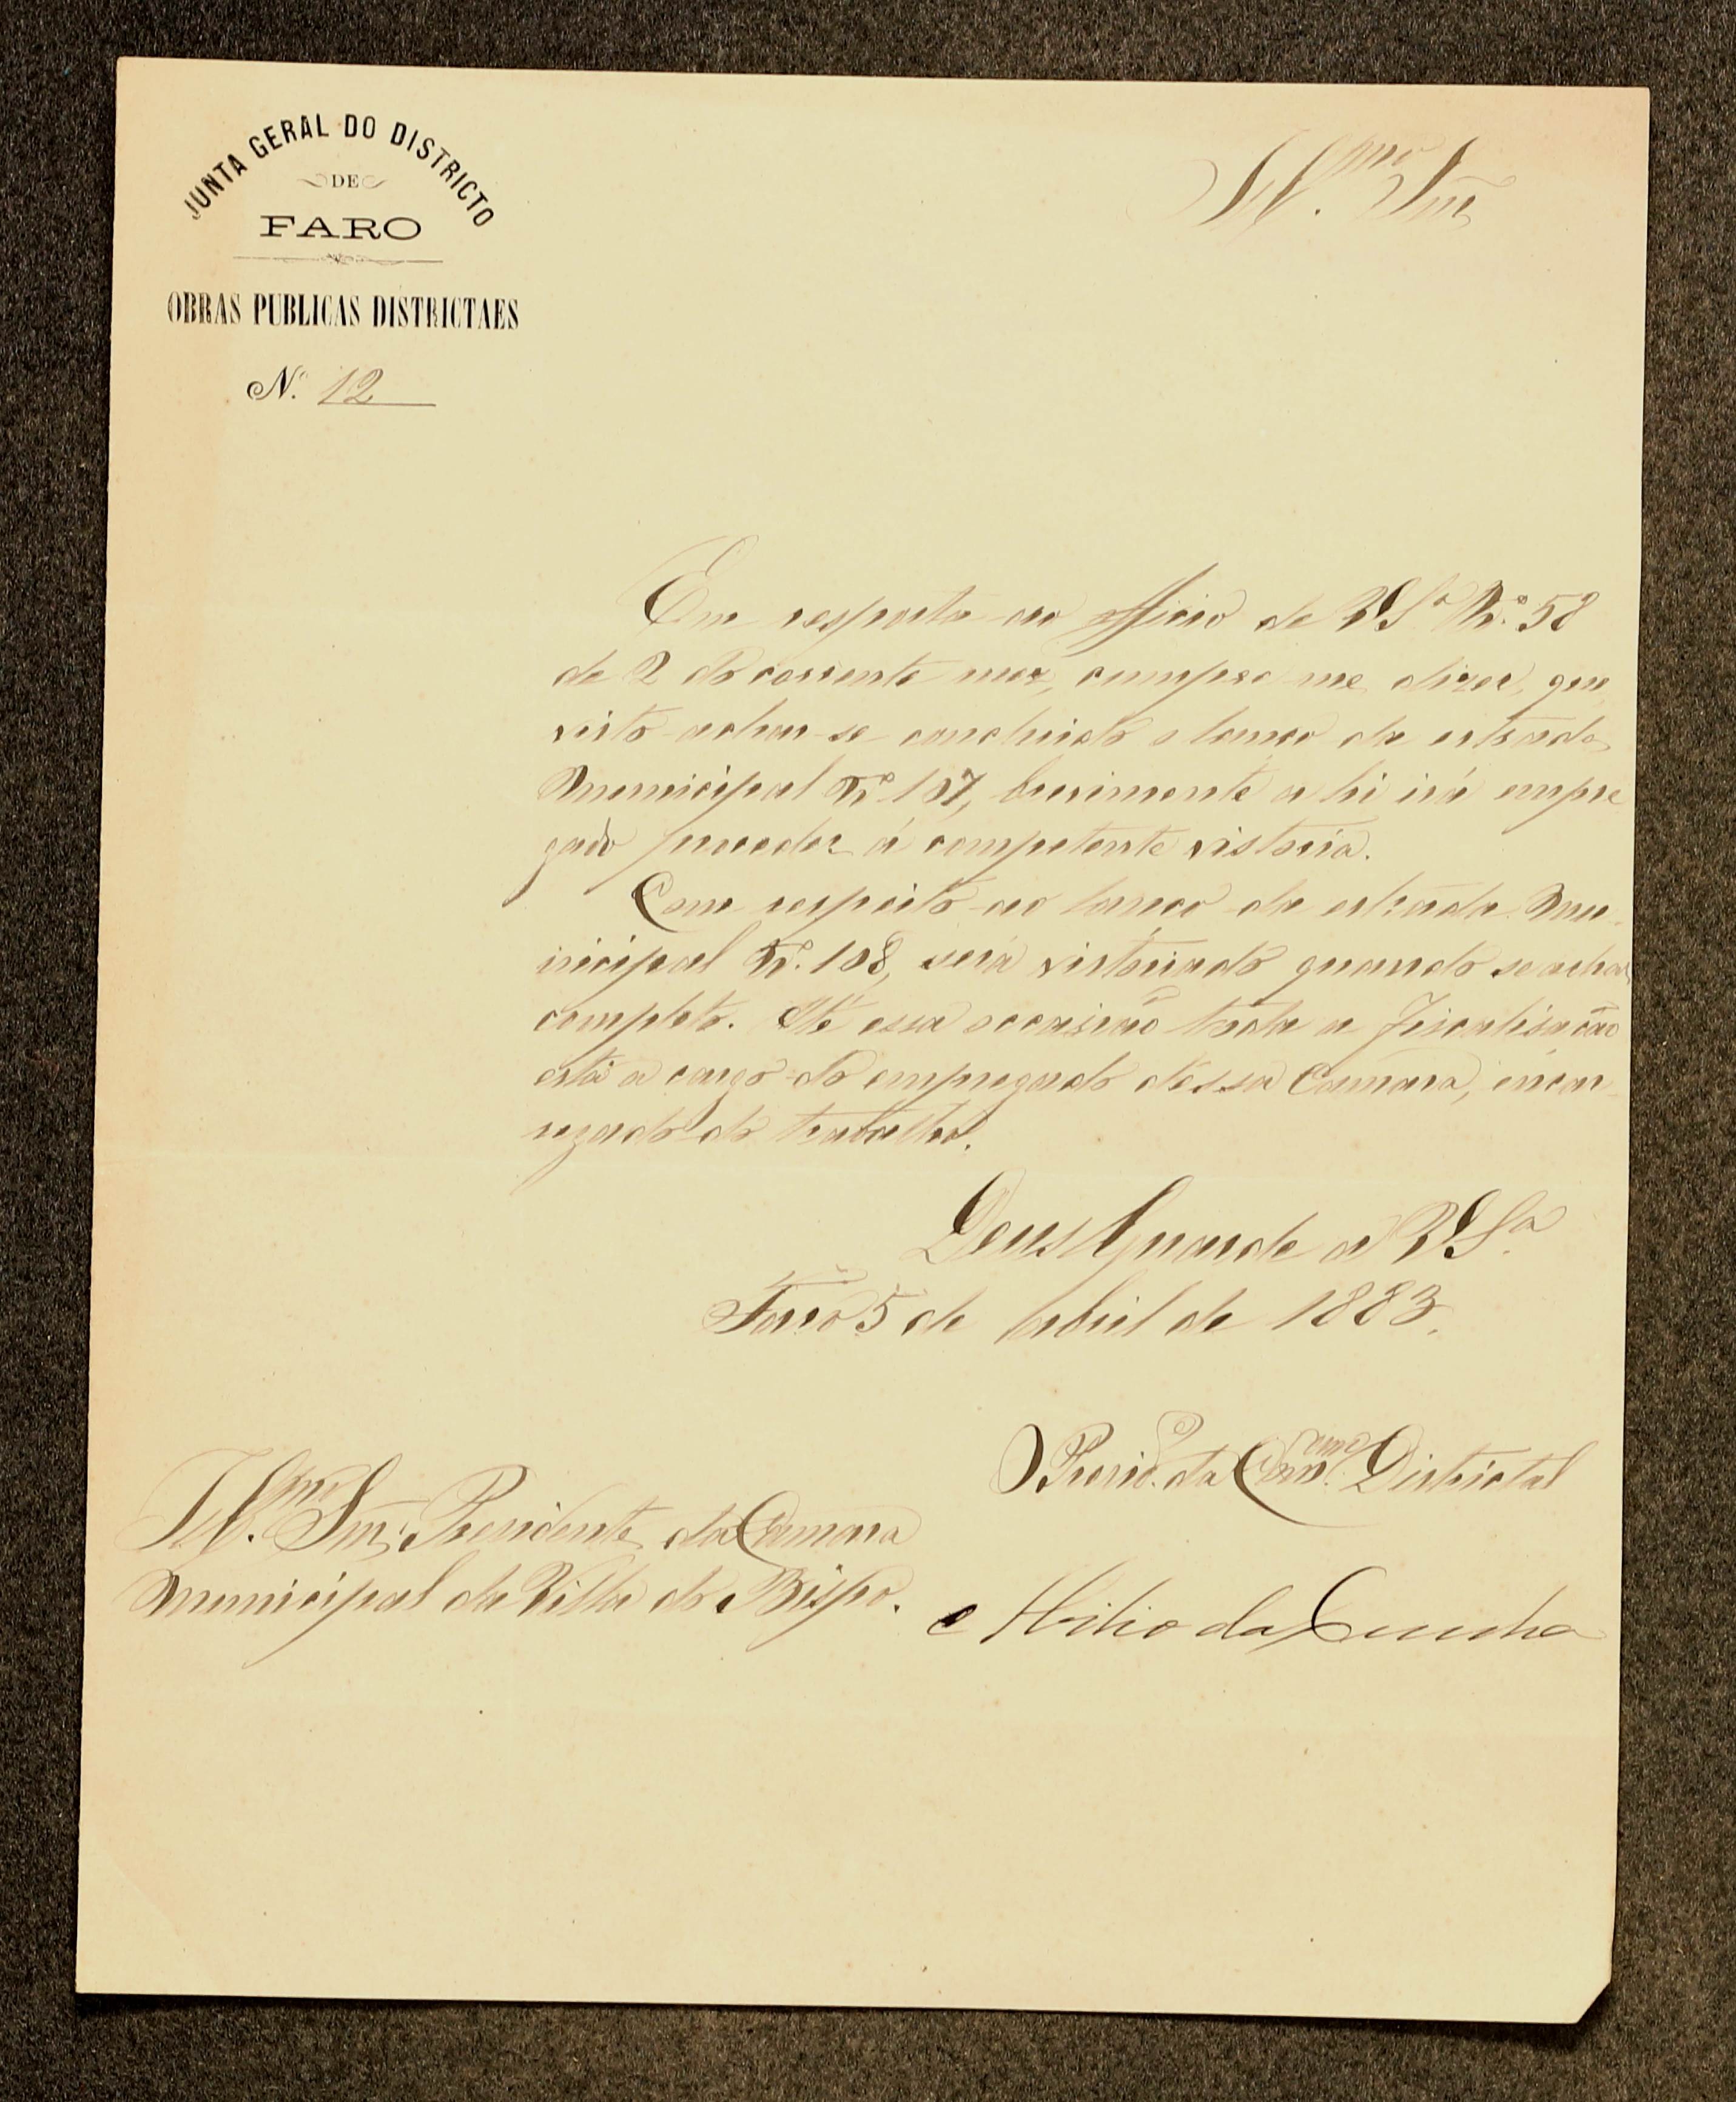 JUNTA GERAL DO DISTRICTO
DE
FARO
OBRAS PUBLICAS DISTRICTAES
N.º 12
Ill.mo Snr.
Em resposta ao officio de V.S.ª N.º 58
de 2 do corrente mez, cumpre-me dizer, que
visto achar-se concluido o lanço da estrada
Municipal N.º 107, brevimente ahi irá empre
gado proceder á competente vistoria.
Com respeito ao lanço da estrada Mu-
nicipal N.º 108, será vistoriado quando se achar
completo. Até essa occasião toda a Fiscalisação
está a cargo do empregado d'essa Camara, encar-
regado do trabalho.
Deus Guarde a V.S.ª
Faro 5 de Abril de 1883.
O Presid.e da Com.am Districtal
Ill.mo Snr. Presidente da Camara
Municipal da Villa do Bispo.
da Cunha